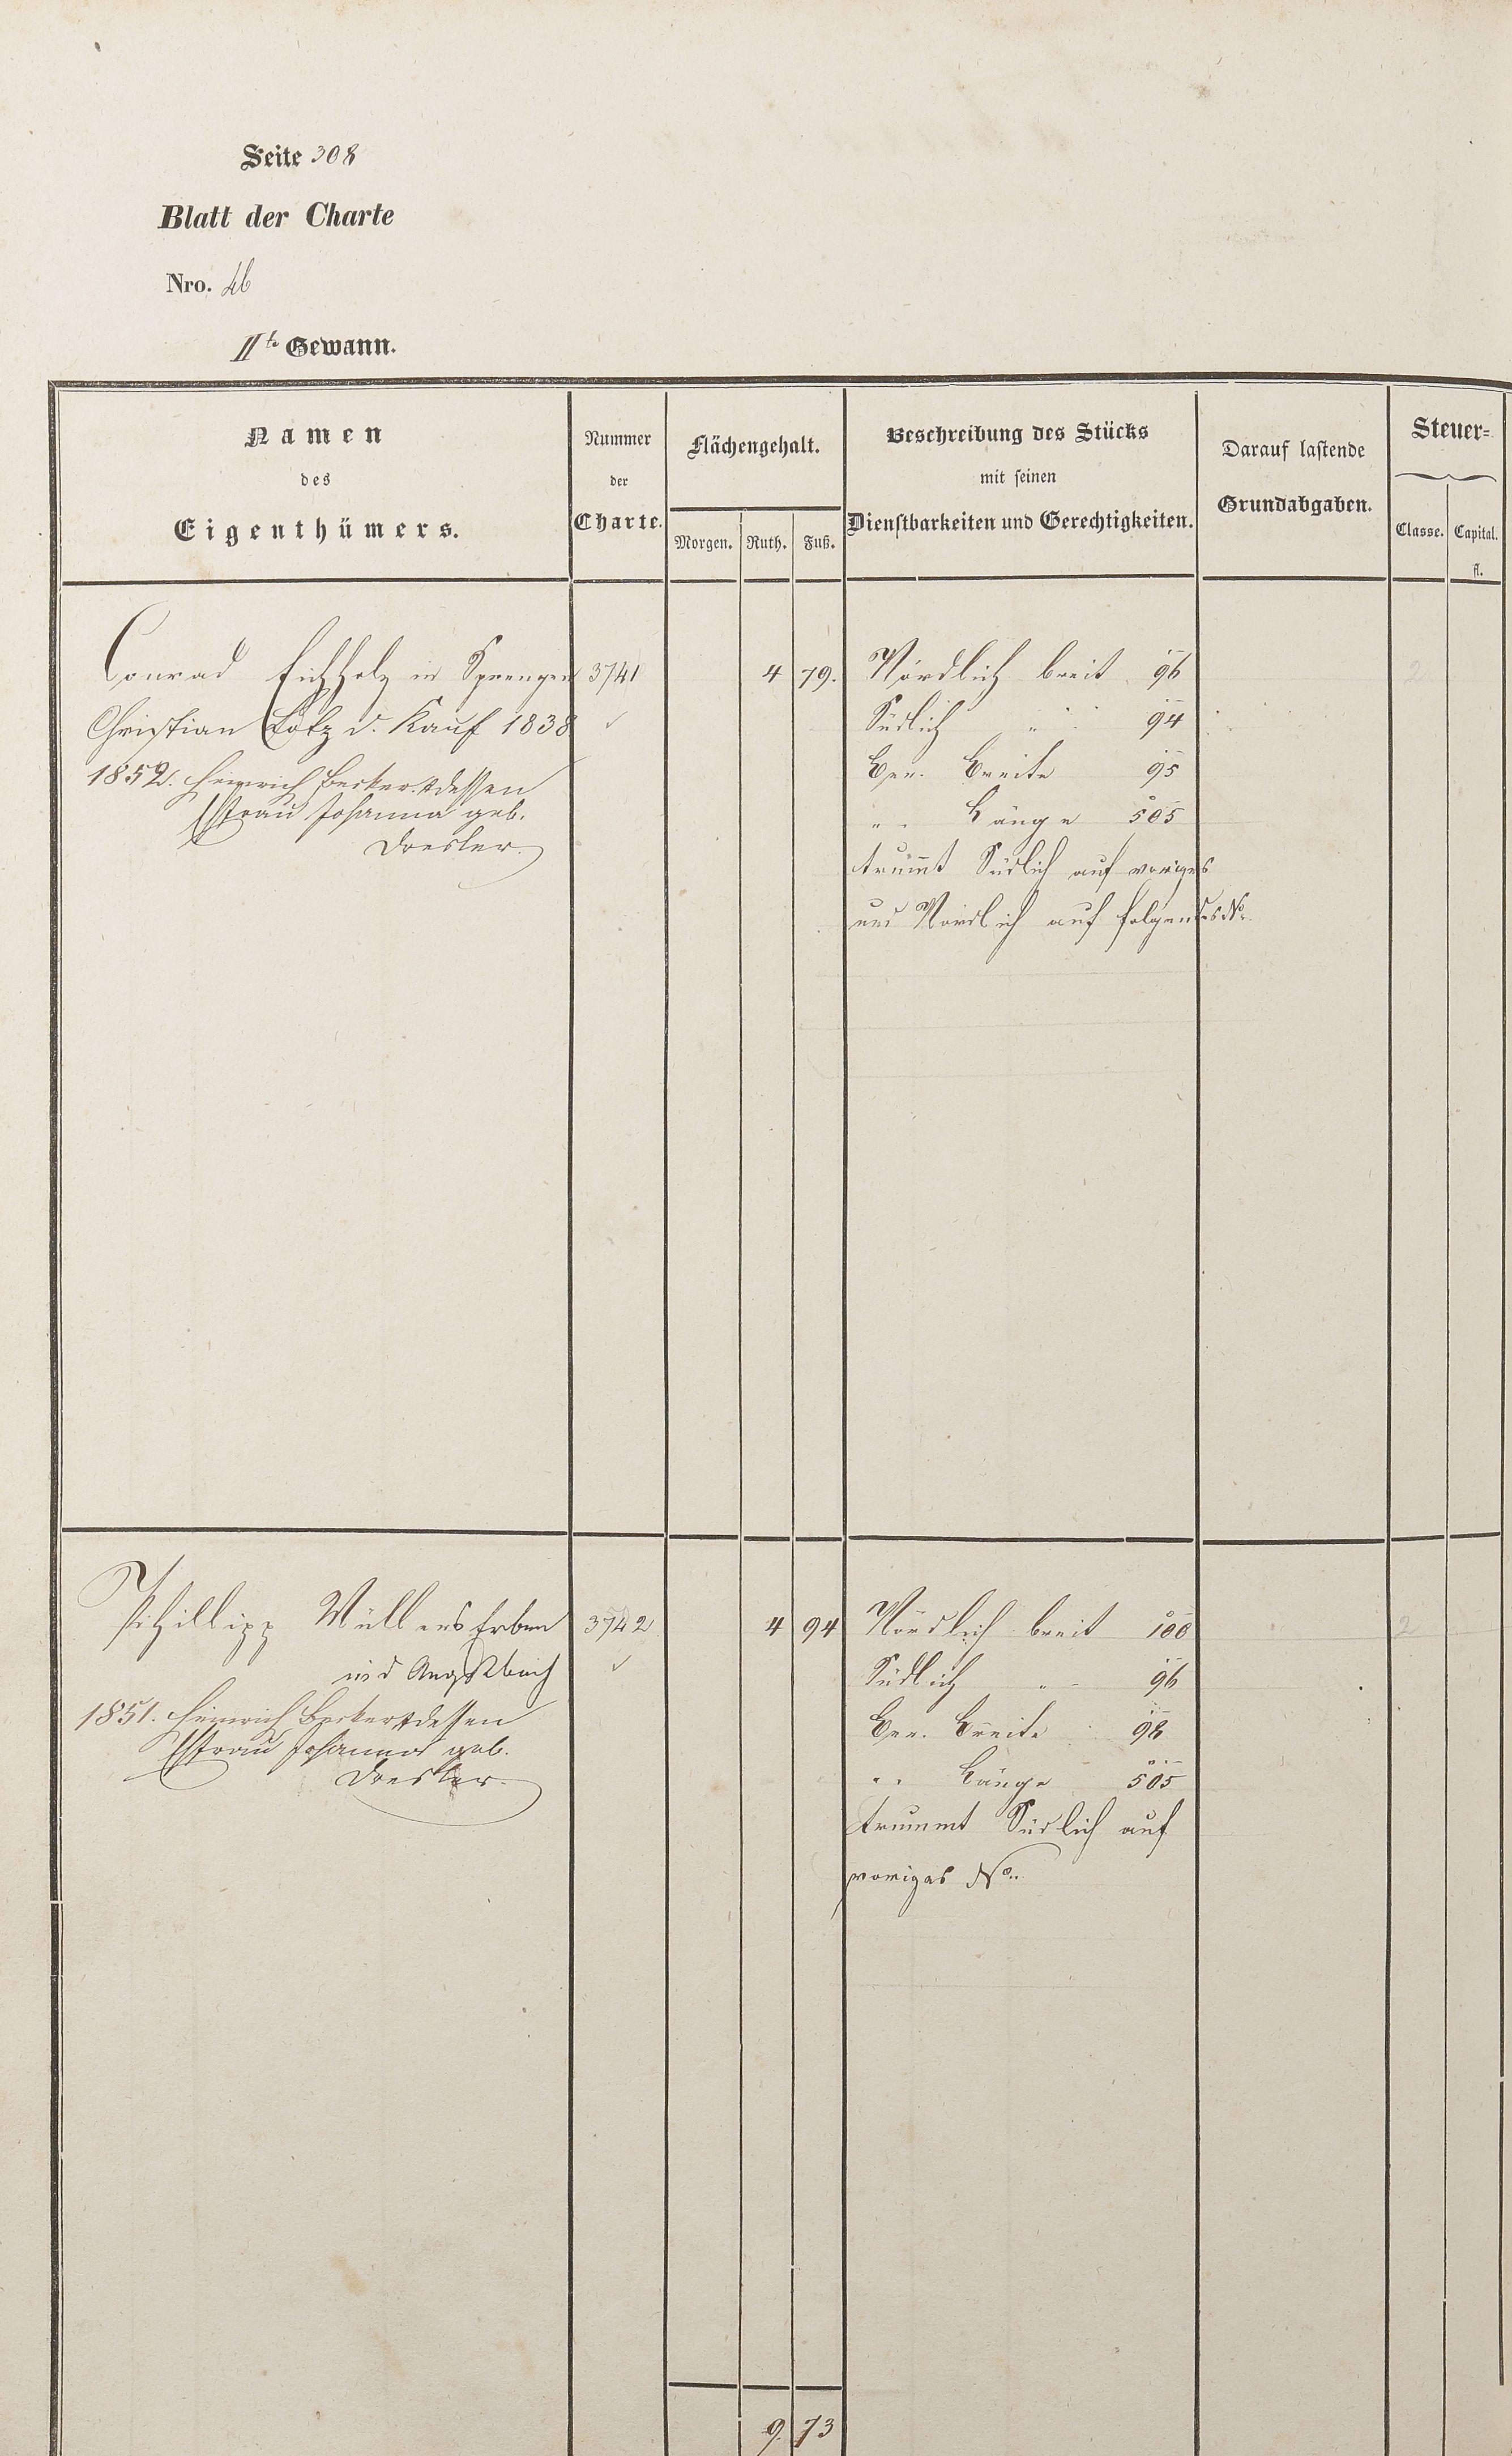 Seite 308
Blatt der Charte
Nro. 46
IIte Gewann.
Namen
des
Eigenthümers.
Nummer
der
Charte.
Flächengehalt.
Morgen. Ruth. Fuß.
Beschreibung des Stücks
mit seinen
Dienstbarkeiten und Gerechtigkeiten.
Darauf lastende
Grundabgaben.
Steuer=
Classe. Capital.
fl.
Conrad Eichholz in 3741 4 79. Nördlich breit 96 2
Christian Lotz d. Kauf 1838 Südlich " 94
1852. Heinrich Becker & dessen Ger. Breite 95
Frau Johanna geb. " Länge 505
Doesler. trummt Südlich auf voriges
und Nördlich auf folgendes No.
Philipp Müllers Erben 3742 4 94 Nördlich breit 100 2
Südlich " 96
1851. Heinrich Becker & dessen Ger. Breite 98
Frau Johanna geb. " Länge 505
Doesler. trummt Südlich auf
voriges No.
9. 73